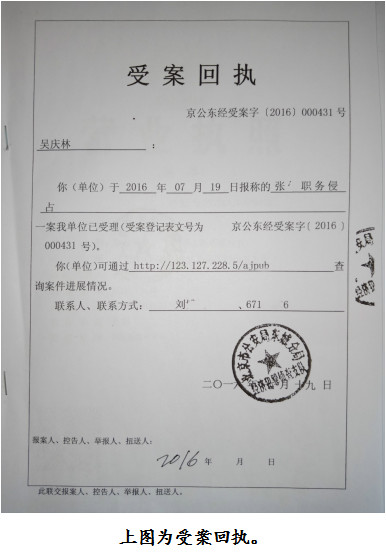 受案回执
京公东经受案字〔2016〕000431号
吴庆林：
你（单位）于 2016 年 07 月 19 日报称的 张 职务侵
占
一案我单位已受理(受案登记表文号为 京公东经受案字〔2016〕
000431号)。
你(单位)可通过 http://123.127.228.5/ajpub 查
询案件进展情况。
联系人、联系方式： 刘 、671 6
北京市公安局东城分局
经济犯罪侦查支队
二〇一 月十九日
报案人、控告人、举报人、扭送人：
2016 年 月 日
此联交报案人、控告人、举报人、扭送人。
上图为受案回执。